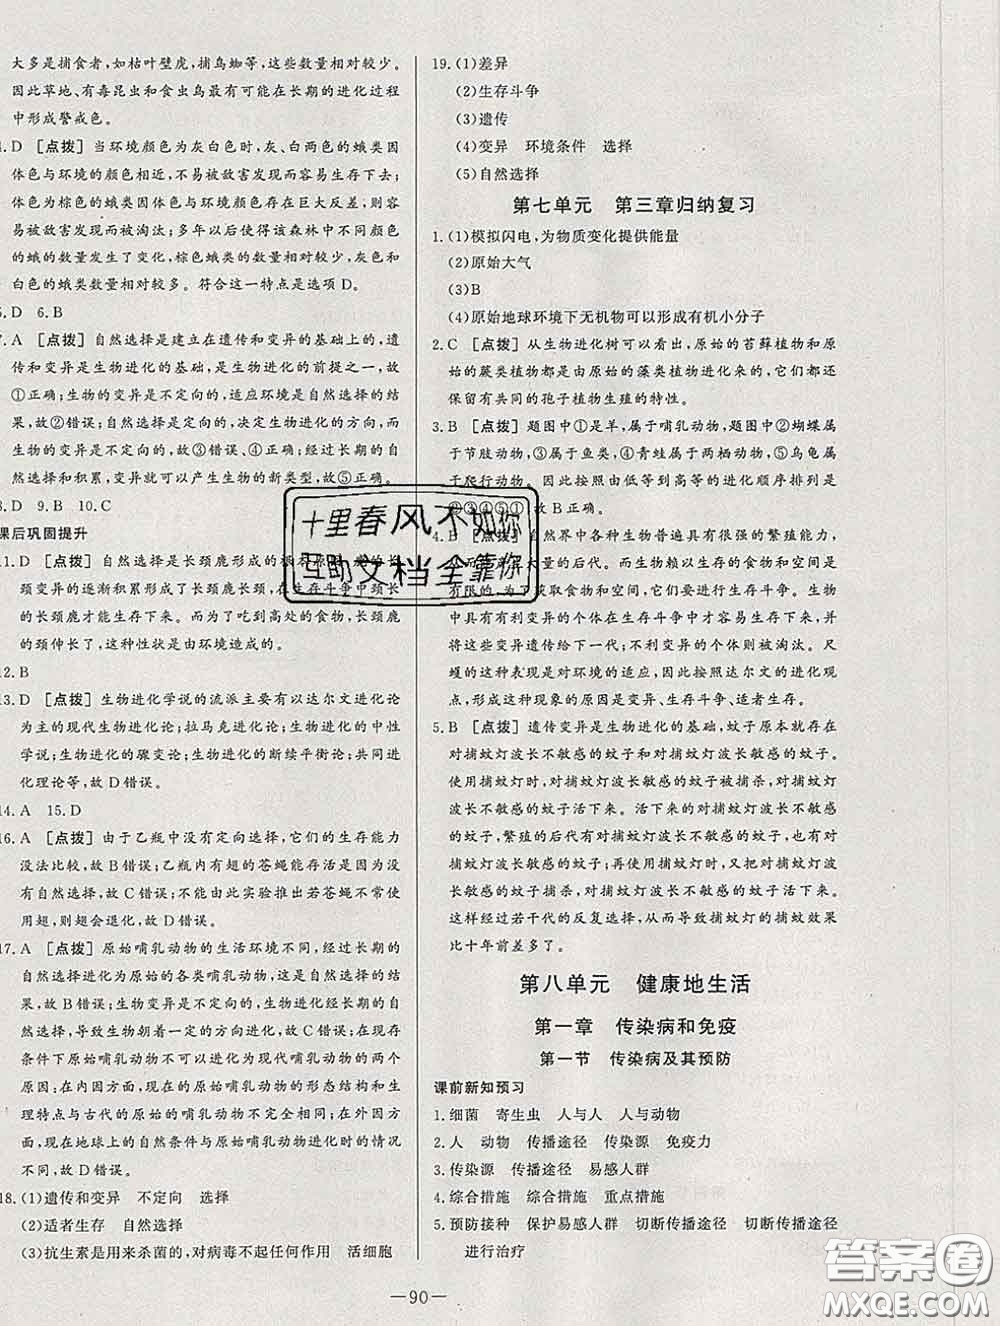 大多是捕食者,如枯叶壁虎,捕鸟蜘等,这些数量相对较少。
因此草地、有毒昆虫和食虫鸟最有可能在长期的进化过程
中形成警戒色。
D [点拨] 当环境颜色为灰白色时,灰、白两色的蛾类因
体色与环境的颜色相近,不易被敌害发现而容易生存下来;
体色为棕色的蛾类因体色与环境颜色存在巨大反差,则容
易被敌害发现而被淘汰;多年以后该森林中不同颜色
的蛾的数量发生了变化,棕色蛾类数量相对较少,灰色和
白色的蛾类数量相对较多。符合这一特点是选项D。
D 6.B
A [点拨] 自然选择是建立在遗传和变异的基础上的,遗
传和变异是生物进化的基础,是生物进化的前提之一,故
①正确;生物的变异是不定向的,适应环境是自然选择的结
果,故②错误;自然选择是定向的,决定生物进化的方向,而
生物的变异是不定向的,故③错误、④正确;经过长期的自然
选择和积累,变异就可以产生生物的新类型,故⑤正确。
D 9.B 10.C
课后巩固提升
11.D [点拨] 自然选择是长颈鹿形成的
颈变异的逐渐积累形成了长颈鹿长颈,在生存斗争中颈长
的长颈鹿才能生存下来。而为了吃到高处的食物,长颈鹿
的颈伸长了,这种性状是由环境造成的。
12.B
13.D [点拨] 生物进化学说的流派主要有以达尔文进化论
为主的现代生物进化论;拉马克进化论;生物进化的中性
学说;生物进化的骤变论;生物进化的断续平衡论;共同进
化理论等,故D错误。
14.A 15.D
16.A [点拨] 由于乙瓶中没有定向选择,它们的生存能力
没法比较,故B错误;乙瓶内有翅的苍蝇能存活是因为没
有自然选择,故C错误;不能由此实验推出若苍蝇不经常
使用翅,则翅会退化,故D错误。
17.A [点拨] 原始哺乳动物的生活环境不同,经过长期的
自然选择进化为原始的各类哺乳动物,是自然选择的结
果,故B错误;生物变异是不定向的,生物进化经长期的自
然选择,导致生物朝着一定的方向进化,故C错误;在现存
条件下原始哺乳动物不可以进化为现代哺乳动物的原因
是:在内因方面,现在的原始哺乳动物的形态结构和生
理特点与古代的原始哺乳动物不完全相同;在外因方
面,现在地球上的自然条件与原始哺乳动物进化时的情况
不同,故D错误。
18.(1)遗传和变异 不定向 选择
(2)适者生存 自然选择
(3)抗生素是用来杀菌的,对病毒不起任何作用 活细胞
19.(1)差异
(2)生存斗争
(3)遗传
(4)变异 环境条件 选择
(5)自然选择
第七单元 第三章归纳复习
1.(1)模拟闪电,为物质变化提供能量
(2)原始大气
(3)B
(4)原始地球环境下无机物可以形成有机小分子
2.C [点拨] 从生物进化树可以看出,原始的苔藓植物和原
始的蕨类植物都是由原始的藻类植物进化来的,它们都还
保留有共同的孢子植物生殖的特性。
3.B [点拨] 题图中①是羊,属于哺乳动物,题图中②蝴蝶属
于节肢动物,③属于鱼类,④青蛙属于两栖动物,⑤乌龟属
于爬行动物。因此按照由低等到高等的进化顺序排列是
②③④⑤①,故B正确。
4.D [点拨] 自然界中各种生物普遍具有很强的繁殖能力,
从而大量的后代。而生物赖以生存的食物和空间是
有限的,为了获取食物和空间,它们要进行生存斗争。生物
中具有有利变异的个体在生存斗争中才容易生存下来,并
将这些变异遗传给下一代;不利变异的个体则被淘汰。尺
蠖的这种表现是对环境的适应,因此按照达尔文的进化观
点,形成这种现象的原因是变异、生存斗争、适者生存。
5.B [点拨] 遗传变异是生物进化的基础,蚊子原本就存在
对捕蚊灯波长不敏感的蚊子和对捕蚊灯波长敏感的蚊子。
使用捕蚊灯时,对捕蚊灯波长敏感的蚊子被捕杀,对捕蚊灯
波长不敏感的蚊子活下来。活下来的对捕蚊灯波长不敏感
的蚊子,繁殖的后代有对捕蚊灯波长不敏感的蚊子和对捕
蚊灯波长敏感的蚊子;再使用捕蚊灯时,又把对捕蚊灯波
长敏感的蚊子捕杀,对捕蚊灯波长不敏感的蚊子活下来。
这样经过若干代的反复选择,从而导致捕蚊灯的捕蚊效果
比十年前差多了。
第八单元 健康地生活
第一章 传染病和免疫
第一节 传染病及其预防
课前新知预习
1.细菌 寄生虫 人与人 人与动物
2.人 动物 传播途径 传染源 免疫力
3.传染源 传播途径 易感人群
4.综合措施 综合措施 重点措施
5.预防接种 保护易感人群 切断传播途径 切断传播途径
进行治疗
—90—
十里春风不如你
互助文档全靠你
答案圈
MXQE.COM